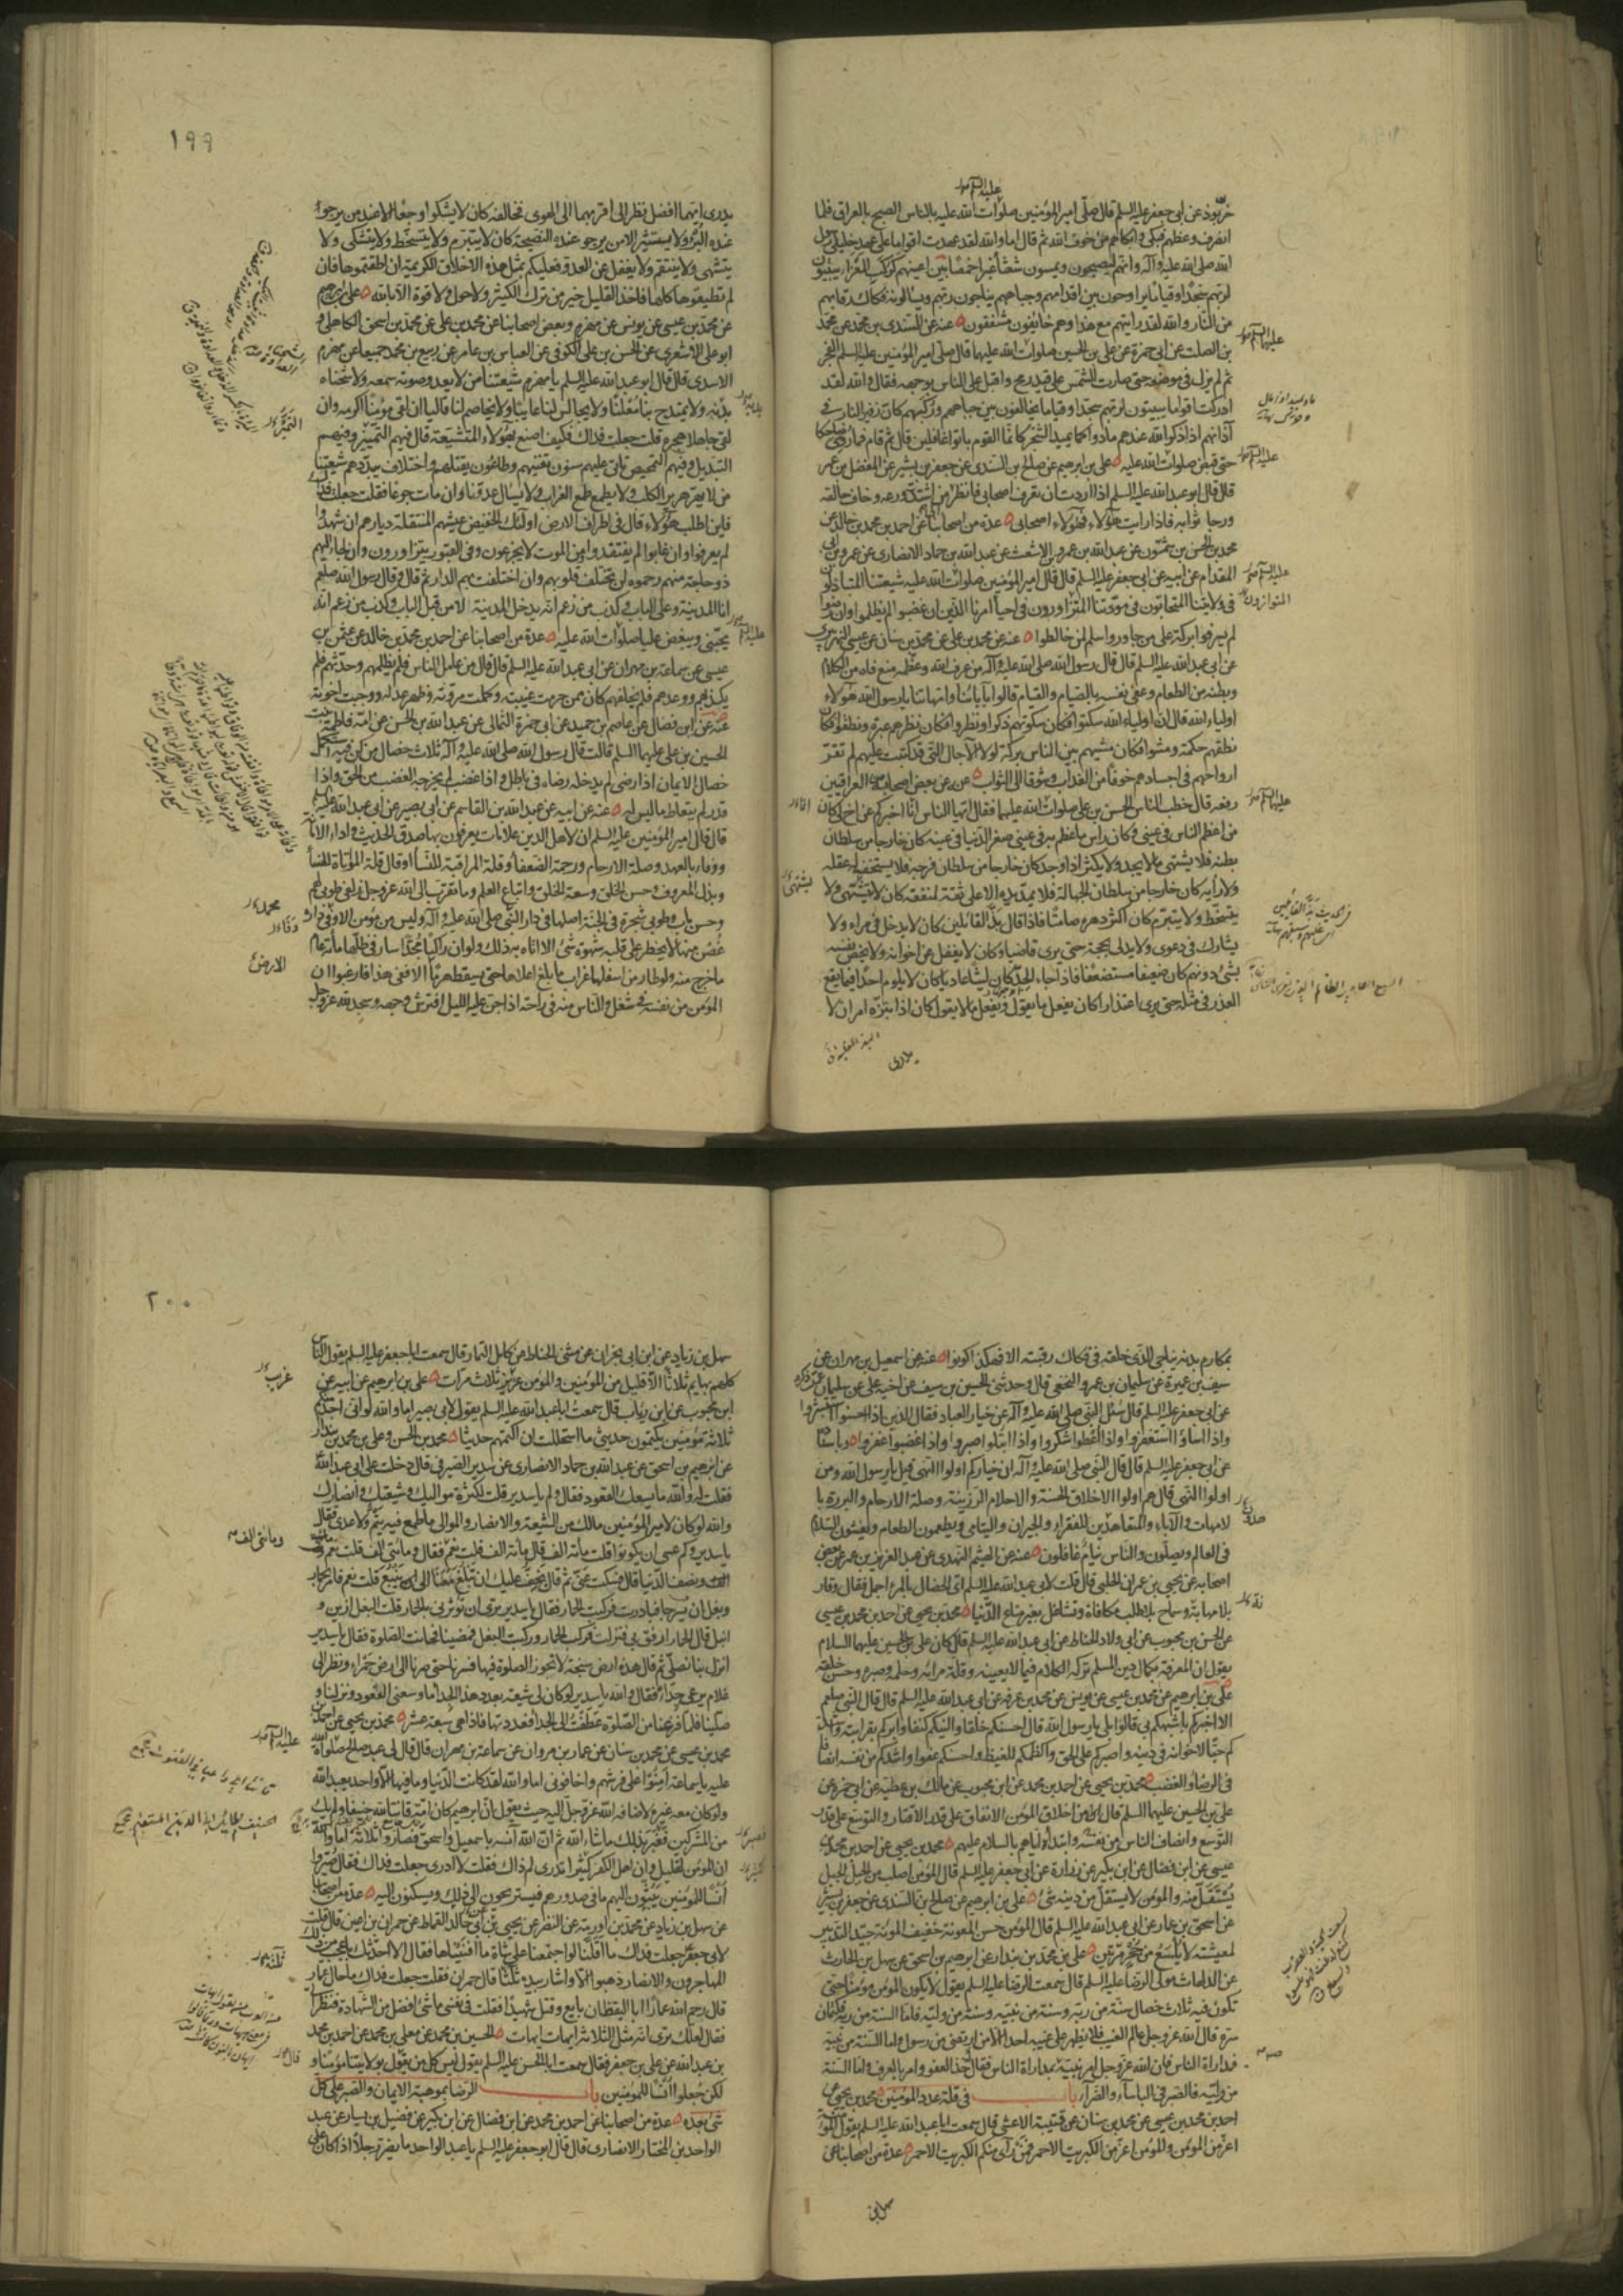 خربوذ عن ابي جعفر عليه السلم قال صلى امير المؤمنين صلوات الله عليه بالناس الصبح بالعراق فلما
انصرف وعظهم فبكى وابكاهم من خوف الله ثم قال اما والله لقد عهدت اقواما على عهد خليلي رسول
الله صلى الله عليه وآله وانهم ليصبحون ويمسون شعثا غبرا خمصا بين اعينهم كركب المعزا يبيتون
لربهم سجدا وقياما يراوحون بين اقدامهم وجباههم يناجون ربهم ويسألونه فكاك رقابهم
من النار والله لقد رايتهم مع هذا وهم خائفون مشفقون عنه عن السندي بن محمد عن محمد
بن الصلت عن ابي حمزة عن علي بن الحسين صلوات الله عليهما قال صلى امير المؤمنين عليه السلم الفجر
ثم لم يزل في موضعه حتى صارت الشمس على قيد رمح واقبل على الناس بوجهه فقال والله لقد
ادركت اقواما يبيتون لربهم سجدا وقياما يخالفون بين جباههم وركبهم كان زفير النار في
آذانهم اذا ذكر الله عندهم مادوا كما يميد الشجر كانما القوم باتوا غافلين قال ثم قام فما رؤي ضاحكا
حتى قبض صلوات الله عليه علي بن ابرهيم عن صالح بن السندي عن جعفر بن بشير عن المفضل بن عمر
قال قال ابو عبد الله عليه السلم اذا اردت ان تعرف اصحابي فانظر من اشتد ورعه وخاف خالقه
ورجا ثوابه فاذا رايت هؤلاء فهؤلاء اصحابي عدة من اصحابنا عن احمد بن محمد بن خالد عن
محمد بن الحسن بن شمون عن عبد الله بن عمرو بن الاشعث عن عبد الله بن حماد الانصاري عن عمرو بن ابي
المقدام عن ابيه عن ابي جعفر عليه السلم قال قال امير المؤمنين صلوات الله عليه شيعتنا المتباذلون
في ولايتنا المتحابون في مودتنا المتزاورون في احيا امرنا الذين ان غضبوا لم يظلموا وان رضوا
لم يسرفوا بركة على من جاوروا سلم لمن خالطوا عنه عن محمد بن علي عن محمد بن سنان عن عيسى النهريري
عن ابي عبد الله عليه السلم قال قال رسول الله صلى الله عليه وآله من عرف الله وعظمه منع فاه من الكلام
وبطنه من الطعام وعفى نفسه بالصيام والقيام قالوا بآبائنا وامهاتنا يا رسول الله هؤلاء
اولياء الله قال ان اولياء الله سكتوا فكان سكوتهم ذكرا ونظروا فكان نظرهم عبرة ونطقوا فكان
نطقهم حكمة ومشوا فكان مشيهم بين الناس بركة لولا الآجال التي قد كتبت عليهم لم تقر
ارواحهم في اجسادهم خوفا من العذاب وشوقا الى الثواب عنه عن بعض اصحابه من العراقيين
رفعه قال خطب الناس الحسن بن علي صلوات الله عليهما فقال ايها الناس انا اخبركم عن اخ لي كان
من اعظم الناس في عيني وكان راس ما عظم به في عيني صغر الدنيا في عينه كان خارجا من سلطان
بطنه فلا يشتهي ما لا يجد ولا يكثر اذا وجد كان خارجا من سلطان فرجه فلا يستخف له عقله
ولا رأيه كان خارجا من سلطان الجهالة فلا يمد يده الا على ثقة لمنفعة كان لا يتشهى ولا
يتسخط ولا يتبرم كان اكثر دهره صامتا فاذا قال بذ القائلين كان لا يدخل في مراء ولا
يشارك في دعوى ولا يدلي بحجة حتى يرى قاضيا وكان لا يغفل عن اخوانه ولا يخص نفسه
بشئ دونهم كان ضعيفا مستضعفا فاذا جاء الجد كان ليثا عاديا كان لا يلوم احدا فيما يقع
العذر في مثله حتى يرى اعتذارا كان يفعل ما يقول ويفعل ما لا يقول كان اذا ابتزه امران لا
يدري
١٩٩
يدري ايهما افضل نظر الى اقربهما الى الهوى فخالفه كان لا يشكوا وجعا الا عند من يرجو
عنده البرؤ ولا يستشير الا من يرجو عنده النصيحة كان لا يتبرم ولا يتسخط ولا يتشكى ولا
يتشهى ولا ينتقم ولا يغفل عن العدو فعليكم بمثل هذه الاخلاق الكريمة ان اطقتموها فان
لم تطيقوها كلها فاخذ القليل خير من ترك الكثير ولا حول ولا قوة الا بالله علي بن ابرهيم
عن محمد بن عيسى عن يونس عن مهزم وبعض اصحابنا عن محمد بن علي عن محمد بن اسحق الكاهلي و
ابو علي الاشعري عن الحسن بن علي الكوفي عن العباس بن عامر عن ربيع بن محمد جميعا عن مهزم
الاسدي قال قال ابو عبد الله عليه السلم يا مهزم شيعتنا من لا يعد وصوته سمعه ولا شحناه
بدنه ولا يمتدح بنا معلنا ولا يجالس لنا عايبا ولا يخاصم لنا قاليا ان لقي مؤمنا اكرمه وان
لقي جاهلا هجره قلت جعلت فداك فكيف اصنع بهؤلاء المتشيعة قال فيهم التمييز وفيهم
التبديل وفيهم التمحيص تاتي عليهم سنون تفنيهم وطاعون يقتلهم واختلاف يبددهم شيعتنا
من لا يهر هرير الكلب ولا يطمع طمع الغراب ولا يسال عدونا وان مات جوعا فقلت جعلت فداك
فاين اطلب هؤلاء قال في اطراف الارض اولئك الخفيض عيشهم المنتقلة ديارهم ان شهدوا
لم يعرفوا وان غابوا لم يفتقدوا ومن الموت لا يجزعون وفي القبور يتزاورون وان لجاء اليهم
ذو حاجة منهم رحموه لن تختلف قلوبهم وان اختلفت بهم الدار ثم قال قال رسول الله صلعم
انا المدينة وعلي الباب وكذب من زعم انه يدخل المدينة الا من قبل الباب وكذب من زعم انه
يحبني ويبغض عليا صلوات الله عليه عدة من اصحابنا عن احمد بن محمد بن خالد عن عثمن بن
عيسى عن سماعة بن مهران عن ابي عبد الله عليه السلم قال قال من عامل الناس فلم يظلمهم وحدثهم فلم
يكذبهم ووعدهم فلم يخلفهم كان ممن حرمت غيبته وكملت مروته وظهر عدله ووجبت اخوته
عنه عن ابن فضال عن عاصم بن حميد عن ابي حمزة الثمالي عن عبد الله بن الحسن عن امه فاطمة بنت
الحسين بن علي عليهما السلم قالت قال رسول الله صلى الله عليه وآله ثلاث خصال من كن فيه استكمل
خصال الايمان اذا رضى لم يدخله رضاه في باطل واذا غضب لم يخرجه الغضب من الحق واذا
قدر لم يتعاط ما ليس له عنه عن ابيه عن عبد الله بن القاسم عن ابي بصير عن ابي عبد الله عليه السلم
قال قال امير المؤمنين عليه السلم ان لاهل الدين علامات يعرفون بها صدق الحديث واداء الامانة
ووفاء بالعهد وصلة الارحام ورحمة الضعفاء وقلة المراقبة للنسأ او قال قلة المؤاتاة للنسأ
وبذل المعروف وحسن الخلق وسعة الخلق واتباع العلم وما تقرب الى الله عز وجل زلفى طوبى لهم
وحسن مآب وطوبى شجرة في الجنة اصلها في دار النبي صلى الله عليه وآله وليس من مؤمن الا وفي داره
غصن منها لا يخطر على قلبه شهوة شئ الا اتاه به ذلك ولو ان راكبا مجدا سار في ظلها مأة عام
ما خرج منه ولو طار من اسفلها غراب ما بلغ اعلاها حتى يسقط هرما الا ففي هذا فارغبوا ان
المؤمن من نفسه في شغل والناس منه في راحة اذا جن عليه الليل افترش وجهه وسجد لله عز وجل
بمكارم بدنه يناجي الذي خلقه في فكاك رقبته الا فهكذا كونوا عنه عن اسمعيل بن مهران عن
سيف بن عميرة عن سليمان بن عمرو النخعي قال وحدثني الحسين بن سيف عن اخيه علي عن سليمان عمن ذكره
عن ابي جعفر عليه السلم قال سئل النبي صلى الله عليه وآله عن خيار العباد فقال الذين اذا احسنوا استبشروا
واذا اساؤا استغفروا واذا اعطوا شكروا واذا ابتلوا صبروا واذا غضبوا غفروا وباسناده
عن ابي جعفر عليه السلم قال قال النبي صلى الله عليه وآله ان خياركم اولوا النهى قيل يا رسول الله ومن
اولوا النهى قال هم اولوا الاخلاق الحسنة والاحلام الرزينة وصلة الارحام والبررة با
لامهات والآباء والمتعاهدين للفقراء والجيران واليتامى ويطعمون الطعام ويفشون السلام
في العالم ويصلون والناس نيام غافلون عنه عن الهيثم النهدي عن عبد العزيز بن عمر عن بعض
اصحابه عن يحيى بن عمران الحلبي قال قلت لابي عبد الله عليه السلم اي الخصال بالمرء اجمل فقال وقار
بلا مهابة وسماح بلا طلب مكافاة وتشاغل بغير متاع الدنيا محمد بن يحيى عن احمد بن محمد بن عيسى
عن الحسن بن محبوب عن ابي ولاد الحناط عن ابي عبد الله عليه السلم قال كان علي بن الحسين عليهما السلام
يقول ان المعرفة بكمال دين المسلم تركه الكلام فيما لا يعنيه وقلة مرائه وحلمه وصبره وحسن خلقه
علي بن ابرهيم عن محمد بن عيسى عن يونس عن محمد بن عرفه عن ابي عبد الله عليه السلم قال قال النبي صلعم
الا اخبركم باشبهكم بي قالوا بلى يا رسول الله قال احسنكم خلقا والينكم كنفا وابركم بقرابته واشد
كم حبا لاخوانه في دينه واصبركم على الحق واكظمكم للغيظ واحسنكم عفوا واشدكم من نفسه انصافا
في الرضا والغضب محمد بن يحيى عن احمد بن محمد عن ابن محبوب عن مالك بن عطية عن ابي حمزة عن
علي بن الحسين عليهما السلم قال من اخلاق المؤمن الانفاق على قدر الاقتار والتوسع على قدر
التوسع وانصاف الناس من نفسه وابتداؤ اياهم بالسلام عليهم محمد بن يحيى عن احمد بن محمد بن
عيسى عن ابن فضال عن ابن بكير عن زرارة عن ابي جعفر عليه السلم قال المؤمن اصلب من الجبل الجبل
يستقل منه والمؤمن لا يستقل من دينه شئ علي بن ابرهيم عن صالح بن السندي عن جعفر بن بشير
عن اسحق بن عمار عن ابي عبد الله عليه السلم قال المؤمن حسن المعونة خفيف المؤنة جيد التدبير
لمعيشته لا يلسع من جحر مرتين علي بن محمد بن بندار عن ابرهيم بن اسحق عن سهل بن الحارث
عن الدلهاث مولى الرضا عليه السلم قال سمعت الرضا عليه السلم يقول لا يكون المؤمن مؤمنا حتى
تكون فيه ثلاث خصال سنة من ربه وسنة من نبيه وسنة من وليه فاما السنة من ربه فكتمان
سره قال الله عز وجل عالم الغيب فلا يظهر على غيبه احدا الا من ارتضى من رسول واما السنة من نبيه
فمداراة الناس فان الله عز وجل امر نبيه بمداراة الناس فقال خذ العفو وامر بالعرف واما السنة
من وليه فالصبر في الباسآء والضرآء باب في قلة عدد المؤمنين محمد بن يحيى عن
احمد بن محمد بن عيسى عن محمد بن سنان عن قتيبة الاعشى قال سمعت ابا عبد الله عليه السلم يقول المؤمنة
اعز من المؤمن والمؤمن اعز من الكبريت الاحمر فمن رآى منكم الكبريت الاحمر عدة من اصحابنا عن
سهل بن
٢٠٠
سهل بن زياد عن ابن ابي نجران عن مثنى الحناط عن كامل التمار قال سمعت ابا جعفر عليه السلم يقول الناس
كلهم بهايم ثلاثا الا قليل من المؤمنين والمؤمن عزيز ثلاث مرات علي بن ابرهيم عن ابيه عن
ابن محبوب عن ابن رياب قال سمعت ابا عبد الله عليه السلم يقول لابي بصير اما والله لو اني اجد منكم
ثلاثة مؤمنين يكتمون حديثي ما استحللت ان اكتمهم حديثا محمد بن الحسن وعلي بن محمد بن بندار
عن ابرهيم بن اسحق عن عبد الله بن حماد الانصاري عن سدير الصيرفي قال دخلت على ابي عبد الله
فقلت له والله ما يسعك القعود فقال ولم يا سدير قلت لكثرة مواليك وشيعتك وانصارك
والله لو كان لامير المؤمنين مالك من الشيعة والانصار والموالي ما طمع فيه تيم ولا عدي فقال
يا سدير وكم عسى ان يكونوا قلت مأته الف قال مأته الف قلت نعم فقال ومأتي الف قلت نعم ومأتي
الف ونصف الدنيا قال فسكت عني ثم قال يخف عليك ان تبلغ معنا الى ينبع قلت نعم فامر بحمار
وبغل ان يسرجا فبادرت فركبت الحمار فقال يا سدير ترى ان تؤثرني بالحمار قلت البغل ازين و
انبل قال الحمار ارفق بي فنزلت فركب الحمار وركبت البغل فمضينا فحانت الصلوة فقال يا سدير
انزل بنا نصلي ثم قال هذه ارض سبخة لا تجوز الصلوة فيها فسرنا حتى صرنا الى ارض حمراء ونظر الى
غلام يرعى جداء فقال والله يا سدير لو كان لي شيعة بعدد هذا الجدأ ما وسعني القعود ونزلنا و
صلينا فلما فرغنا من الصلوة عطفت الى الجدأ فعددتها فاذا هي سبعة عشر محمد بن يحيى عن احمد بن
محمد بن عيسى عن محمد بن سنان عن عمار بن مروان عن سماعة بن مهران قال قال لي عبد صالح صلوات الله
عليه يا سماعة امنوا على فرشهم واخافوني اما والله لقد كانت الدنيا وما فيها الا واحد يعبد الله
ولو كان معه غيره لاضافه الله عز وجل اليه حيث يقول ان ابرهيم كان امة قانتا لله حنيفا ولم يك
من المشركين فغبر بذلك ماشاء الله ثم ان الله آنسه باسمعيل واسحق فصاروا ثلاثة اما والله
ان المؤمن لقليل وان اهل الكفر كثير اتدري لم ذاك فقلت لا ادري جعلت فداك فقال صيروا
انسا للمؤمنين يبثون اليهم ما في صدورهم فيستريحون الى ذلك ويسكنون اليه عدة من اصحابنا
عن سهل بن زياد عن محمد بن اورمة عن النضر عن يحيى بن ابي خالد القماط عن حمران بن اعين قال قلت
لابي جعفر جعلت فداك ما اقلنا لو اجتمعنا على شاة ما افنيناها فقال الا احدثك باعجب من ذلك
المهاجرون والانصار ذهبوا الا واشار بيده ثلثا قال حمران فقلت جعلت فداك ما حال عمار
قال رحم الله عمارا ابا اليقظان بايع وقتل شهيدا فقلت في نفسي ما شئ افضل من الشهادة فنظر الي
فقال لعلك ترى انه مثل الثلاثة ايهات ايهات الحسين بن محمد عن معلى بن محمد عن احمد بن محمد
بن عبد الله عن علي بن جعفر فقال سمعت ابا الحسن عليه السلم يقول ليس كل من يقول بولايتنا مؤمنا و
لكن جعلوا انسا للمؤمنين باب الرضا بموهبة الايمان والصبر على كل
شئ بعده عدة من اصحابنا عن احمد بن محمد عن ابن فضال عن ابن بكير عن فضيل بن يسار عن عبد
الواحد بن المختار الانصاري قال قال ابو جعفر عليه السلم يا عبد الواحد ما يضر رجلا اذا كان على